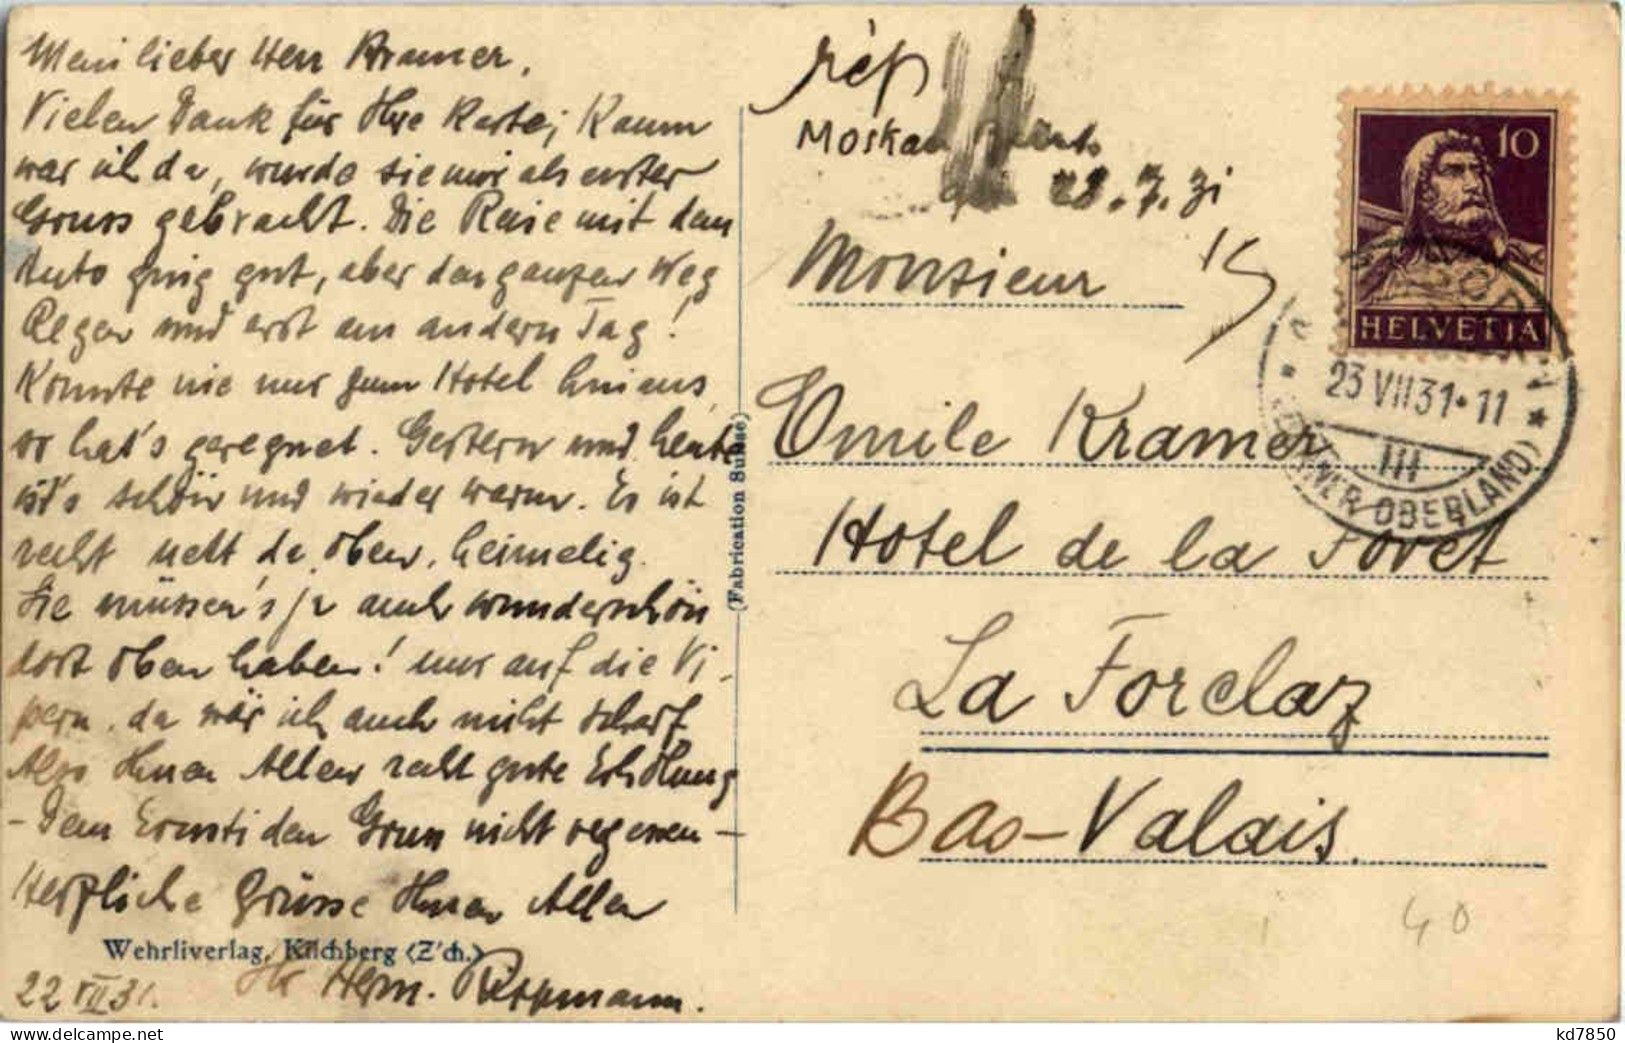 Mein lieber Herr Kramer,
Vielen Dank für Ihre Karte; Kaum
war ich da, wurde sie mir als erster
Gruss gebracht. Die Reise mit dem
Auto ging gut, aber den ganzen Weg
Regen und erst am andern Tag!
Konnte nie nur zum Hotel hinaus,
so hat's geregnet. Gestern und heute
ist's schön und wieder warm. Es ist
recht nett da oben, heimelig.
Sie müssen's ja auch wunderschön
dort oben haben! nur auf die Vi-
pern, da wär ich auch nicht scharf
Also Ihnen Allen recht gute Erholung
- Dem Ernsti den Gruss nicht vegessen -
Herzliche Grüsse Ihnen Allen
Wehrliverlag, Kilchberg (Z'ch.)
22 VII 31. Ihr Herm. Rippmann.
(Fabrication Suisse)
rép
Moskau
22.7.31
Monsieur
Emile Kramer
Hotel de la Foret
La Forclaz
Bas-Valais.
10
HELVETIA
23 VII 31 • 11
III
(BERNER OBERLAND)
40
kd7850